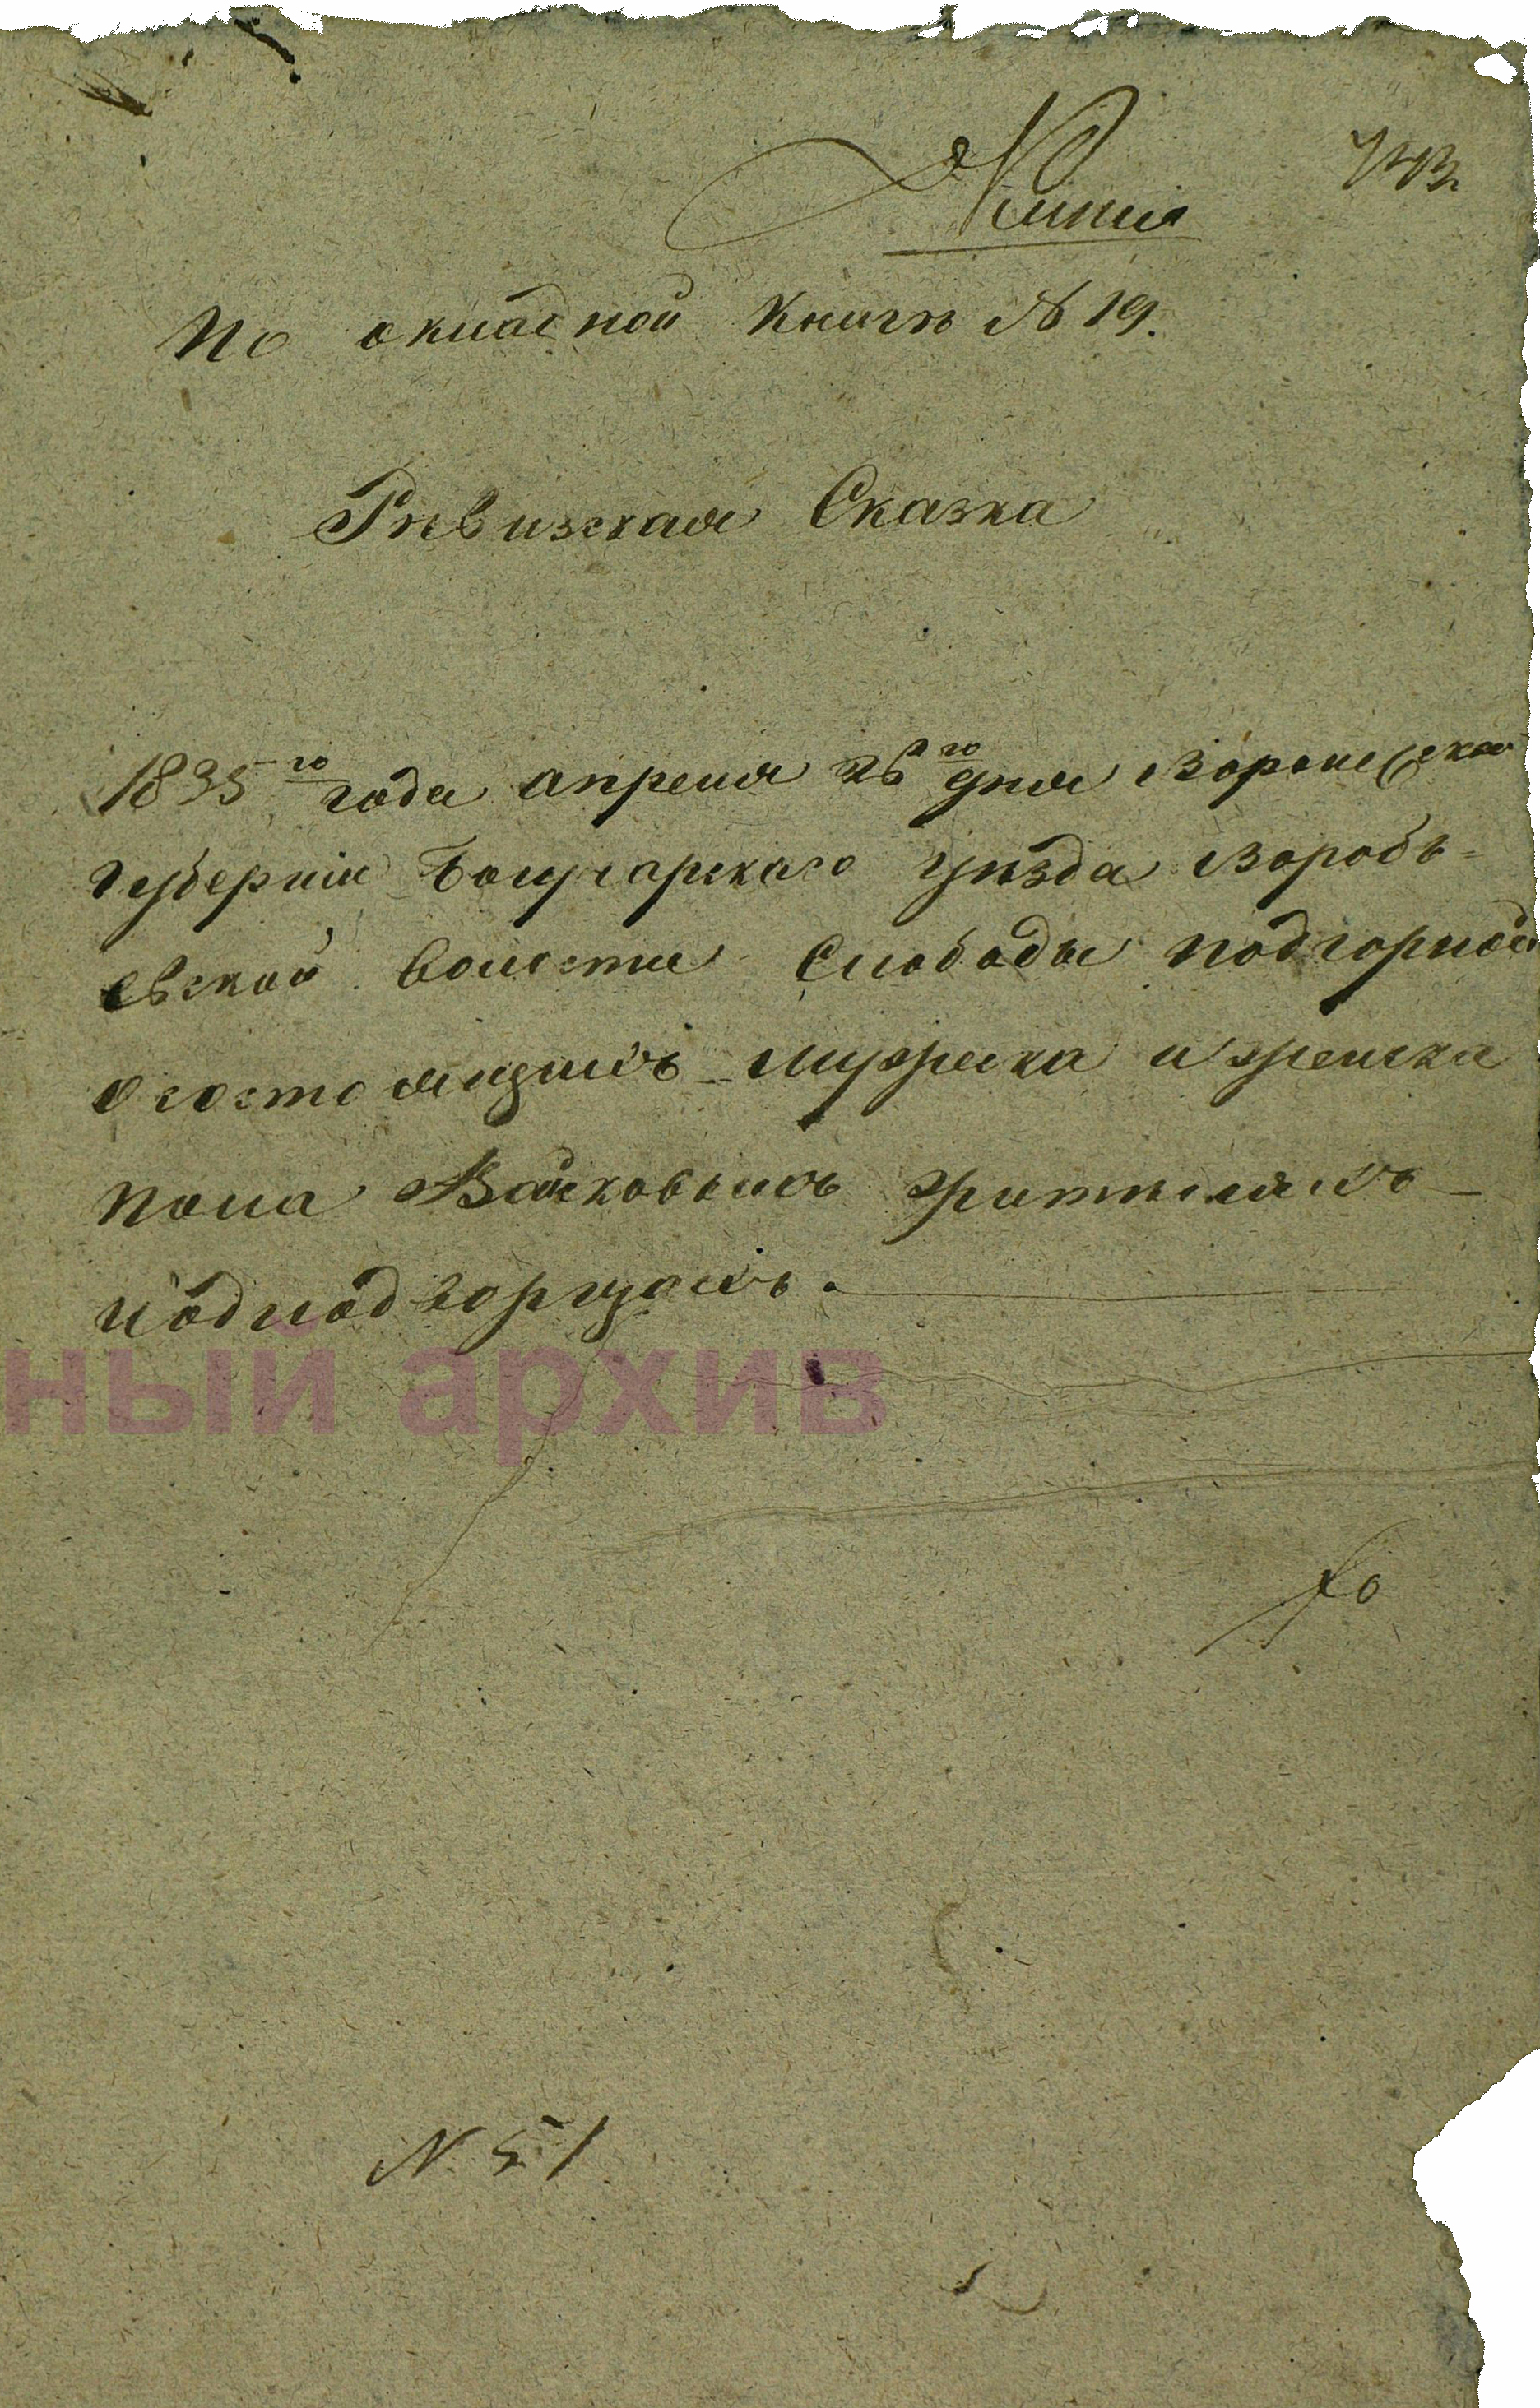 Копия
По окладной Книгѣ № 19.
Ревизская Сказка
1835го года апреля 26го дня Воронежской
губерніи Богучарскаго уѣзда Воробь=
евской волости Слободы подгорной
о состоящихъ мужеска и женска
пола Войсковыхъ жителяхъ
и подподгорцахъ.
ный архив
N. 51